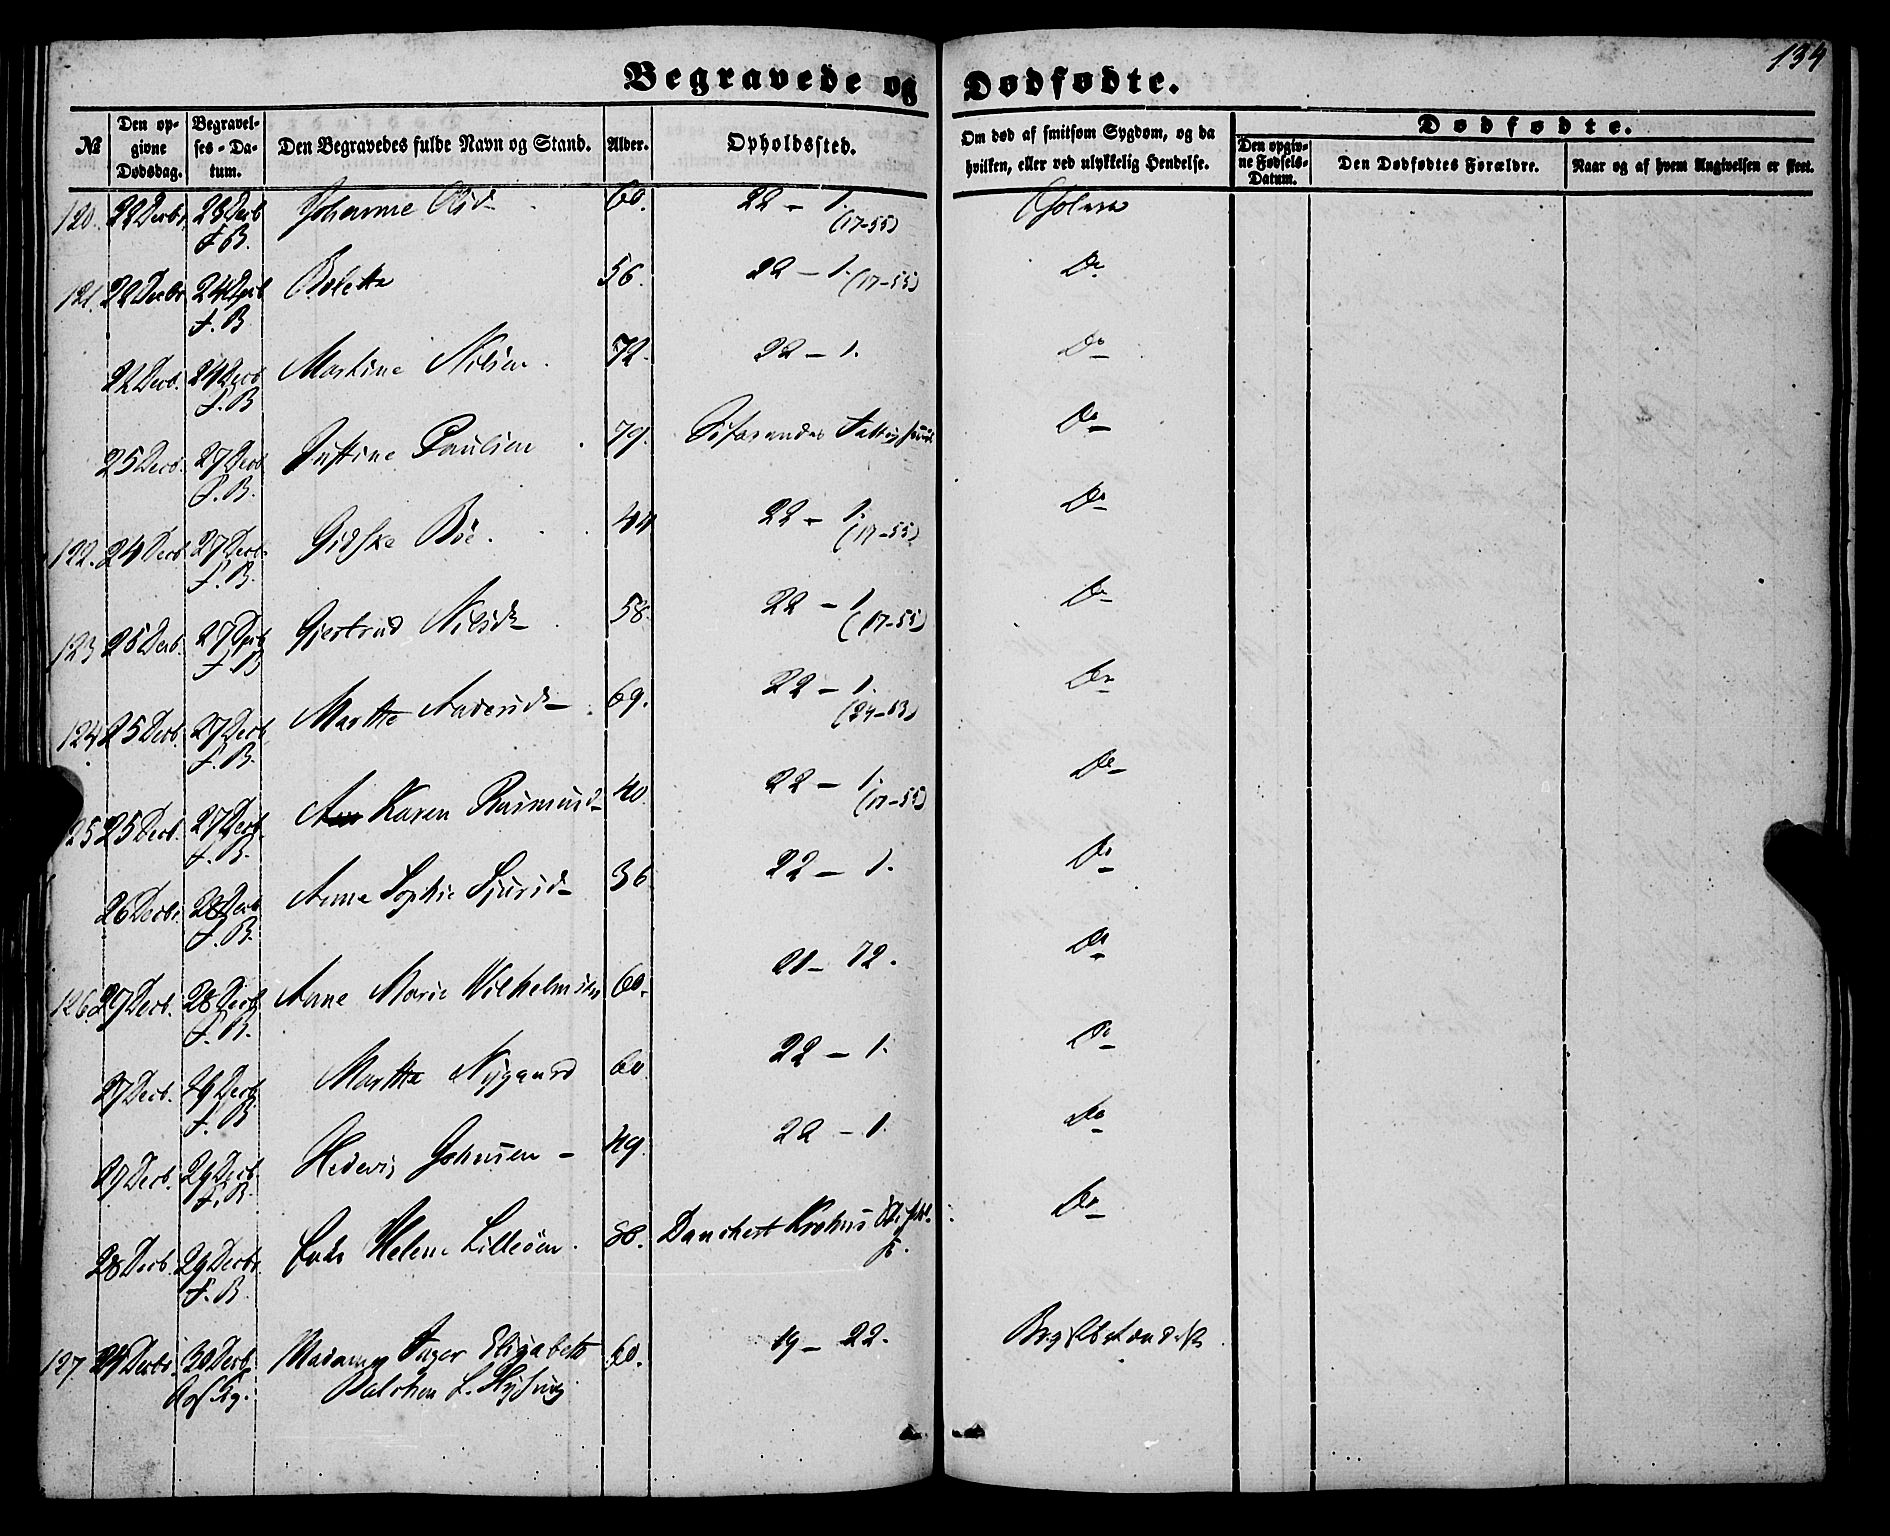 134
Begravede og Dødfødte.
№ Den opgivne Dødsdag. Begravelses-Datum. Den Begravedes fulde Navn og Stand. Alder. Opholdssted. Om død af smitsom Sygdom, og da hvilken, eller ved ulykkelig Hendelse. Dødfødte.
Den opgivne Fødsels-Datum. Den Dødfødtes Forældre. Naar og af hvem Angivelsen er skeet.
120. 22 Decbr. 23 Decb Johanne Olsd 60. 22 - 1. Cholera
F.B. (17-55)
121. 22 Decbr 24 Decb Boletta 56. 22 - 1. (17-55) Do
F.B
22 Decb. 24 Decb Martine Nilsen. 72. 22 - 1. Do
F.B
25 Decb. 27 Decb Justine Paulsen 79. Do
F.B.
122. 24 Decb 27 Decb. Gidske Böe. 44 22 - 1. Do
F.B. (17-55)
123 25 Decb. 27 Decb Gjertrud Nilsd 58. 22 - 1. Do
F.B (17-55)
124 25 Decb. 27 Decb Marthe Andersd 69. 22 - 1. Do
F.B. (24-13)
125 25 Decb. 27 Decb. Karen Rasmusd 40. 22 - 1. Do
F.B. (17-55)
26 Decbr. 28 Decb Anna Sophie Sjursd 36 22 - 1. Do
F.B.
126. 27 Decb. 28 Decb Anne Marie Wilhelmsen 60. 21 - 72. Do
F.B.
27 Decb. 29 Decb. Marthe Nygaard 60. 22 - 1. Do
F.B
27 Decb. 29 Decb. Hedevig Johnsen 49. 22 - 1. Do
F.B.
28 Decb. 29 Decbr. Helene Lilleöen. 80. Danckert Krohns Stift. Do
F.B.
127 30 Decb. Madame Inger Elisabeth 60. 19 - 22.
Balchen f. Hysing